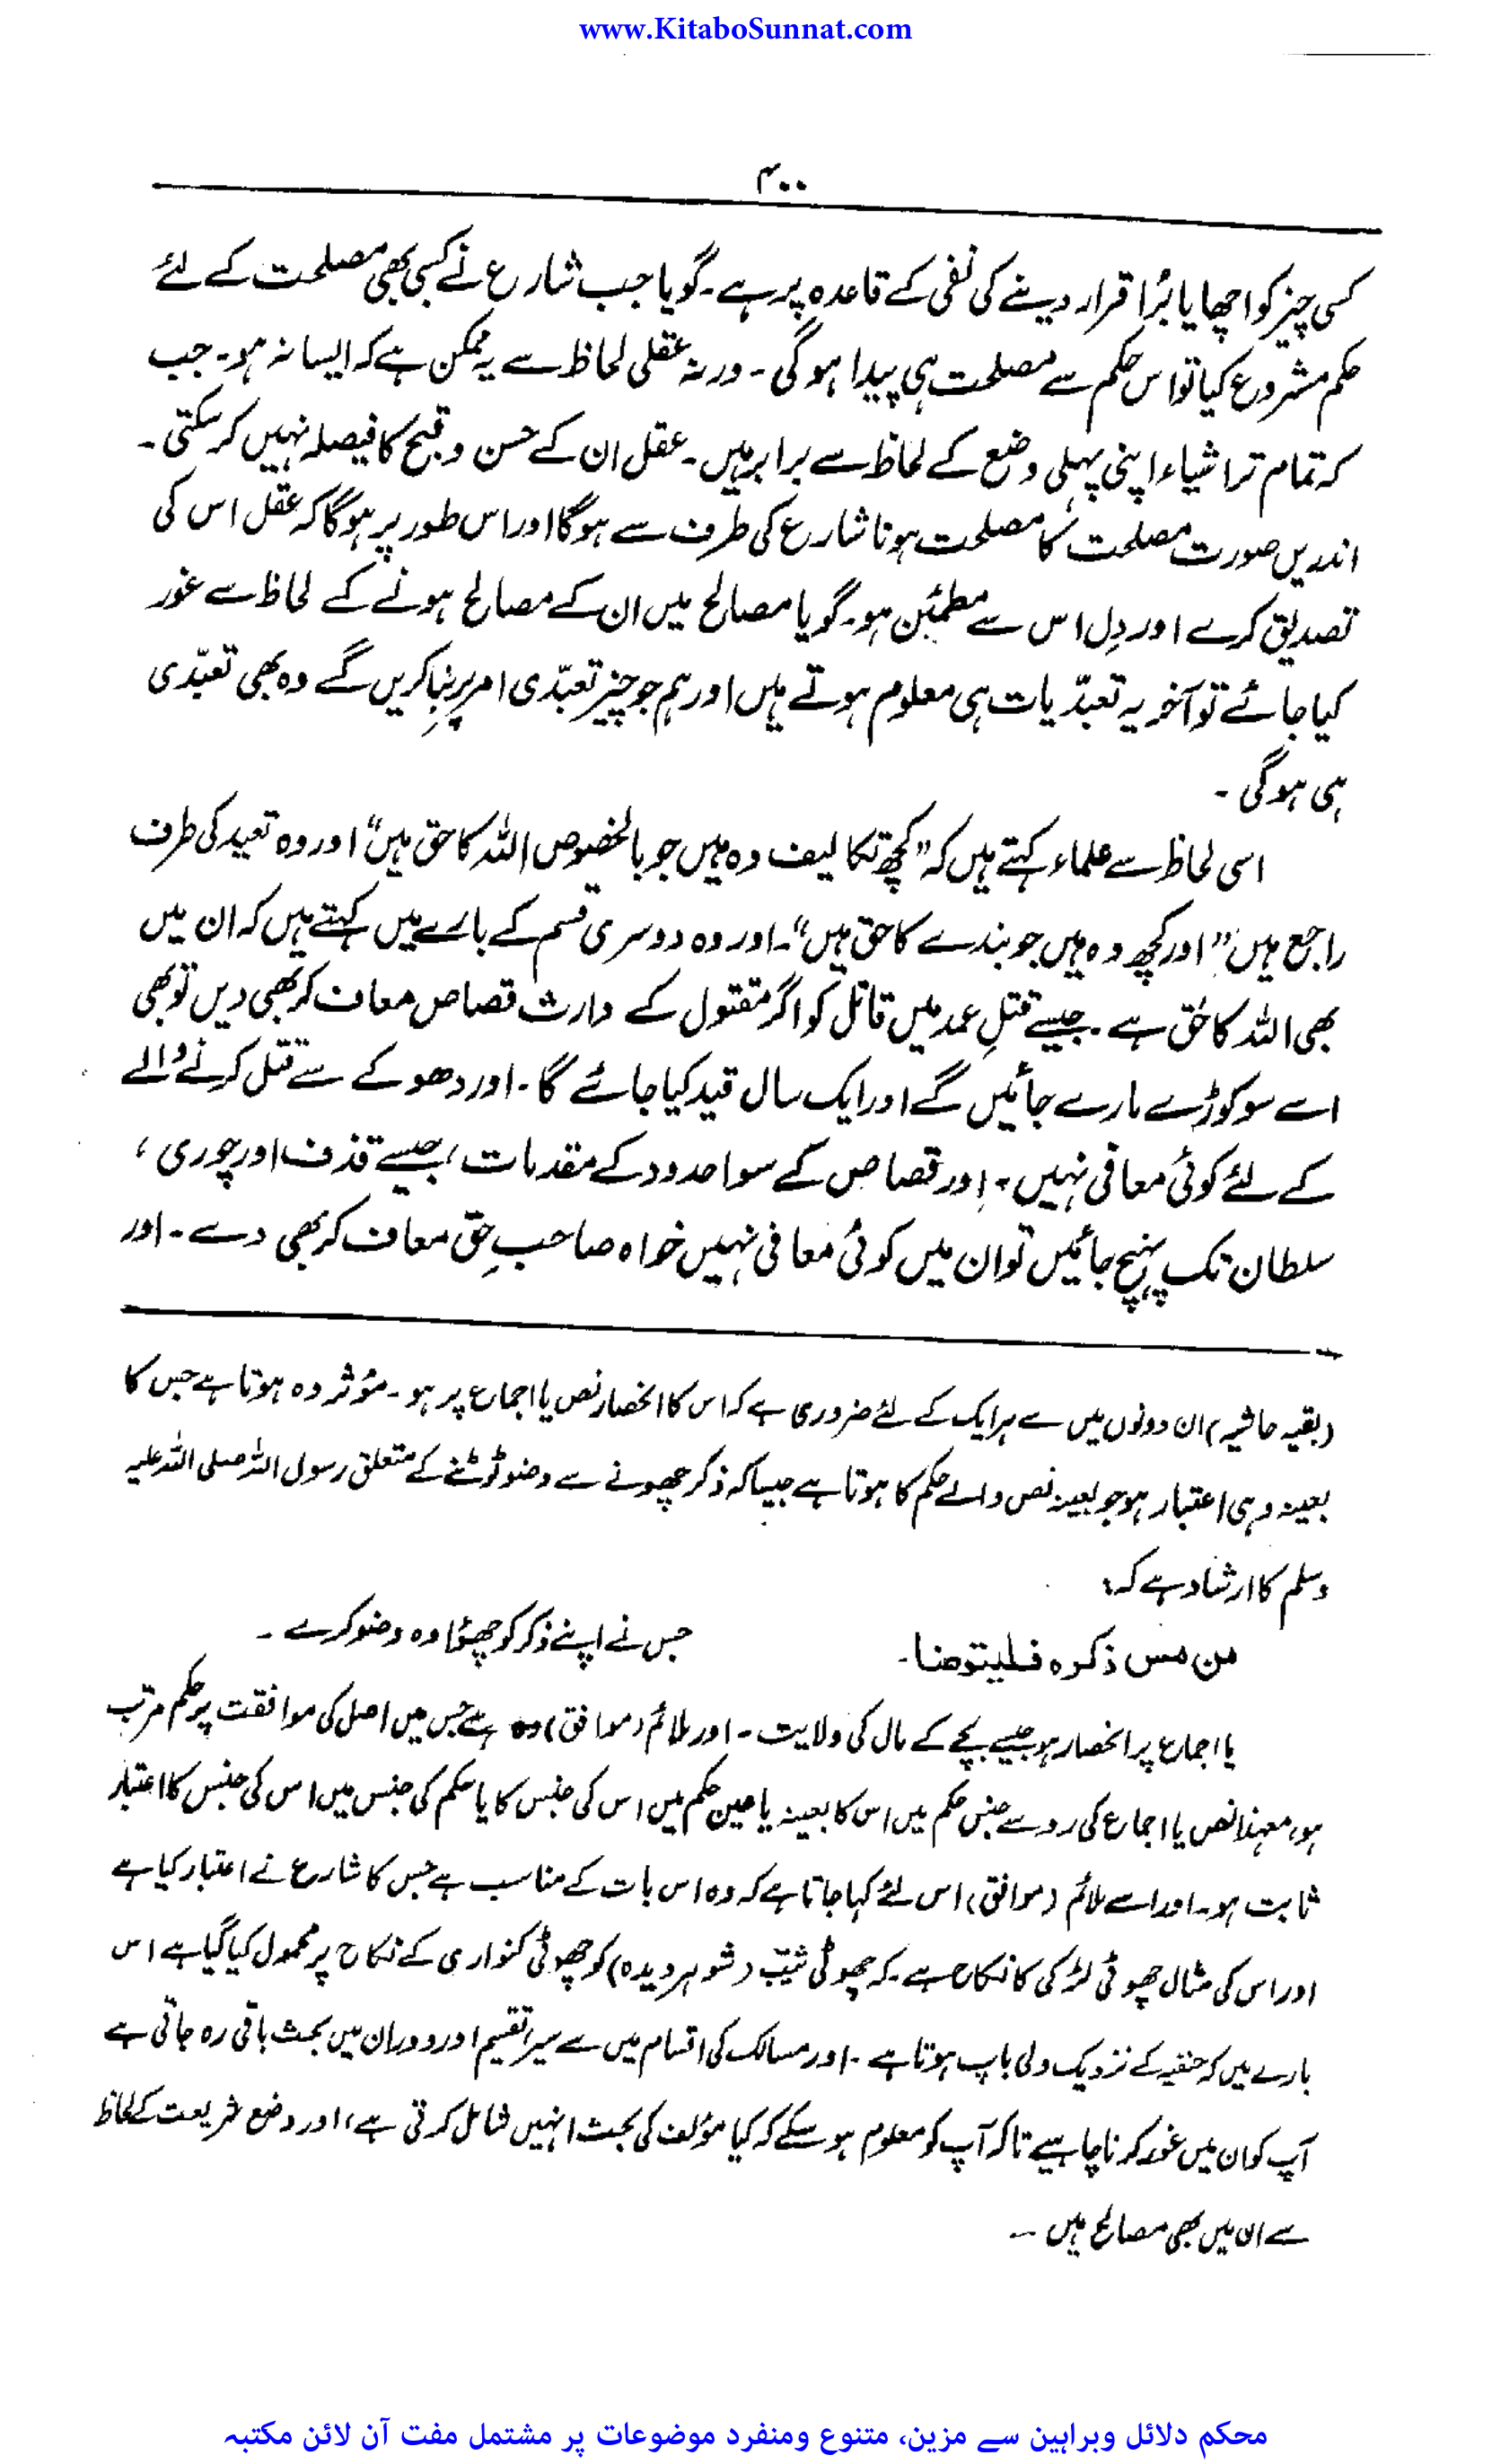 www.KitaboSunnat.com
۴۰۰
کسی چیز کو اچھا یا بُرا قرار دینے کی نفی کے قاعدہ پر ہے۔ گویا جب شارع نے کسی بھی مصلحت کے لئے
حکم مشروع کیا تو اس حکم سے مصلحت ہی پیدا ہوگی۔ ورنہ عقلی لحاظ سے یہ ممکن ہے کہ ایسا نہ ہو۔ جب
کہ تمام تر اشیاء اپنی پہلی وضع کے لحاظ سے برابر ہیں۔ عقل ان کے حسن و قبح کا فیصلہ نہیں کرسکتی۔
اندریں صورت مصلحت کا مصلحت ہونا شارع کی طرف سے ہوگا اور اس طور پر ہوگا کہ عقل اس کی
تصدیق کرے اور دِل اس سے مطمئن ہو۔ گویا مصالح میں ان کے مصالح ہونے کے لحاظ سے غور
کیا جائے تو آخر یہ تعبّدیات ہی معلوم ہوتے ہیں اور ہم جو چیز تعبّدی امر پر بِنا کریں گے وہ بھی تعبّدی
ہی ہوگی۔
اسی لحاظ سے علماء کہتے ہیں کہ ”کچھ تکالیف وہ ہیں جو بالخصوص اللہ کا حق ہیں“ اور وہ تعبد کی طرف
راجع ہیں ”اور کچھ وہ ہیں جو بندے کا حق ہیں“۔ اور وہ دوسری قسم کے بارے میں کہتے ہیں کہ ان میں
بھی اللہ کا حق ہے۔ جیسے قتلِ عمد میں قاتل کو اگر مقتول کے وارث قصاص معاف کر بھی دیں تو بھی
اسے سو کوڑے مارے جائیں گے اور ایک سال قید کیا جائے گا۔ اور دھوکے سے قتل کرنے والے
کے لئے کوئی معافی نہیں۔ اور قصاص کے سوا حدود کے مقدمات، جیسے قذف اور چوری،
سلطان تک پہنچ جائیں تو ان میں کوئی معافی نہیں خواہ صاحبِ حق معاف کر بھی دے۔ اور
(بقیہ حاشیہ) ان دونوں میں سے ہر ایک کے لئے ضروری ہے کہ اس کا انحصار نص یا اجماع پر ہو۔ مؤثر وہ ہوتا ہے جس کا
بعینہ وہی اعتبار ہو جو بعینہ نص والے حکم کا ہوتا ہے جیسا کہ ذکر چھونے سے وضو ٹوٹنے کے متعلق رسول اللہ صلی اللہ علیہ
وسلم کا ارشاد ہے کہ:
من مس ذكره فليتوضا۔ جس نے اپنے ذکر کو چھؤا وہ وضو کرے۔
یا اجماع پر انحصار ہو جیسے بچے کے مال کی ولایت۔ اور ملائم (موافق) وہ ہے جس میں اصل کی موافقت پر حکم مرتب
ہو، معہٰذا نص یا اجماع کی رو سے جنس حکم میں اس کا بعینہ یا عین حکم میں اس کی جنس کا یا حکم کی جنس میں اس کی جنس کا اعتبار
ثابت ہو۔ اور اسے ملائم (موافق) اس لئے کہا جاتا ہے کہ وہ اس بات کے مناسب ہے جس کا شارع نے اعتبار کیا ہے
اور اس کی مثال چھوٹی لڑکی کا نکاح ہے۔ کہ چھوٹی ثیّب (شوہر دیدہ) کو چھوٹی کنواری کے نکاح پر محمول کیا گیا ہے اس
بارے میں کہ حنفیہ کے نزدیک ولی باپ ہوتا ہے۔ اور مسالک کی اقسام میں سے سیر و تقسیم اور دوران میں بحث باقی رہ جاتی ہے
آپ کو ان میں غور کرنا چاہیے تاکہ آپ کو معلوم ہو سکے کہ کیا مؤلف کی بحث انہیں شامل کرتی ہے، اور وضع شریعت کے لحاظ
سے ان میں بھی مصالح ہیں۔
محکم دلائل وبراہین سے مزین، متنوع ومنفرد موضوعات پر مشتمل مفت آن لائن مکتبہ